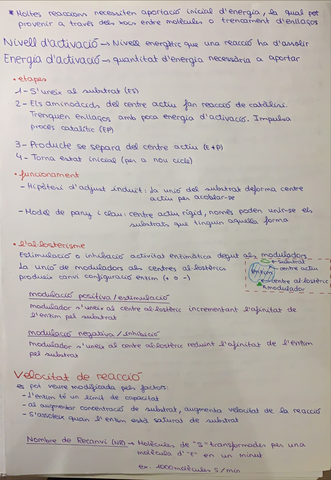 * Moltes reaccions necessiten aportació inicial d'energia, la qual pot
provenir a través dels xocs entre molècules o trencament d'enllaços
Nivell d'activació → Nivell energètic que una reacció ha d'assolir
Energia d'activació → quantitat d'energia necessària a aportar
• etapes
1 - S'uneix al substrat (ES)
2 - Els aminoàcids del centre actiu fan reacció de catàlisi.
Trenquen enllaços amb poca energia d'activació. Impulsa
procés catalític (EP)
3 - Producte se separa del centre actiu (E+P)
4 - Torna estat inicial (per a nou cicle)
• funcionament
- Hipòtesi d'ajust induït: la unió del substrat deforma centre
actiu per acoblar-se
- Model de pany i clau: centre actiu rígid, només poden unir-se els
substrats que tinguin aquella forma
• l'al·losterisme
Estimulació o inhibició activitat enzimàtica degut als moduladors
La unió de moduladors als centres al·lostèrics
produeix canvi configuració enzim (+ o -)
substrat
enzim
centre actiu
centre al·lostèric
modulador
modulació positiva / estimulació
modulador s'uneix al centre al·lostèric incrementant l'afinitat de
l'enzim pel substrat
modulació negativa / inhibició
modulador s'uneix al centre al·lostèric reduint l'afinitat de l'enzim
pel substrat
Velocitat de reacció
es pot veure modificada pels factors:
- l'enzim té un límit de capacitat
- al augmentar concentració de substrat, augmenta velocitat de la reacció
- S'assoleix quan l'enzim està saturat de substrat
Nombre de Recanvi (NR) → Molècules de "S" transformades per una
molècula d'"E" en un minut
ex. 1000 molècules S/min